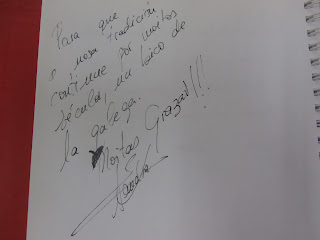 Para que
a nosa tradición
continue por moitos
séculos, un bico de
la galega.
Moitas Grazas!!!